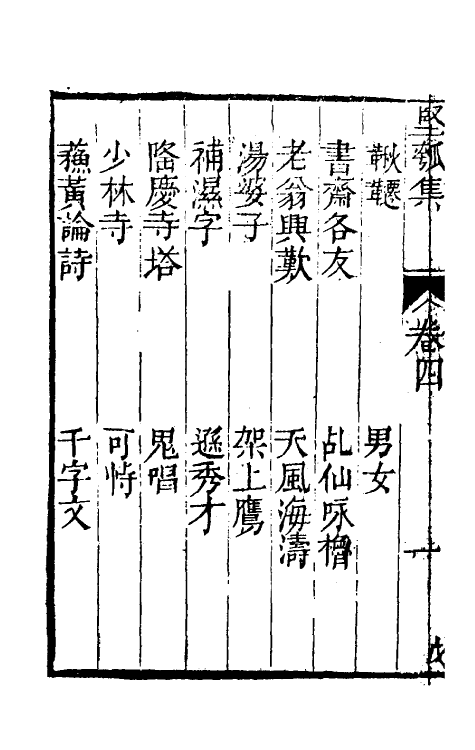 堅瓠集
卷四
鞦韆
男女
書齋各友
乩仙咏檜
老翁興歎
天風海濤
湯婆子
架上鷹
補濕字
遜秀才
隆慶寺塔
鬼唱
少林寺
可恃
蘓黃論詩
千字文